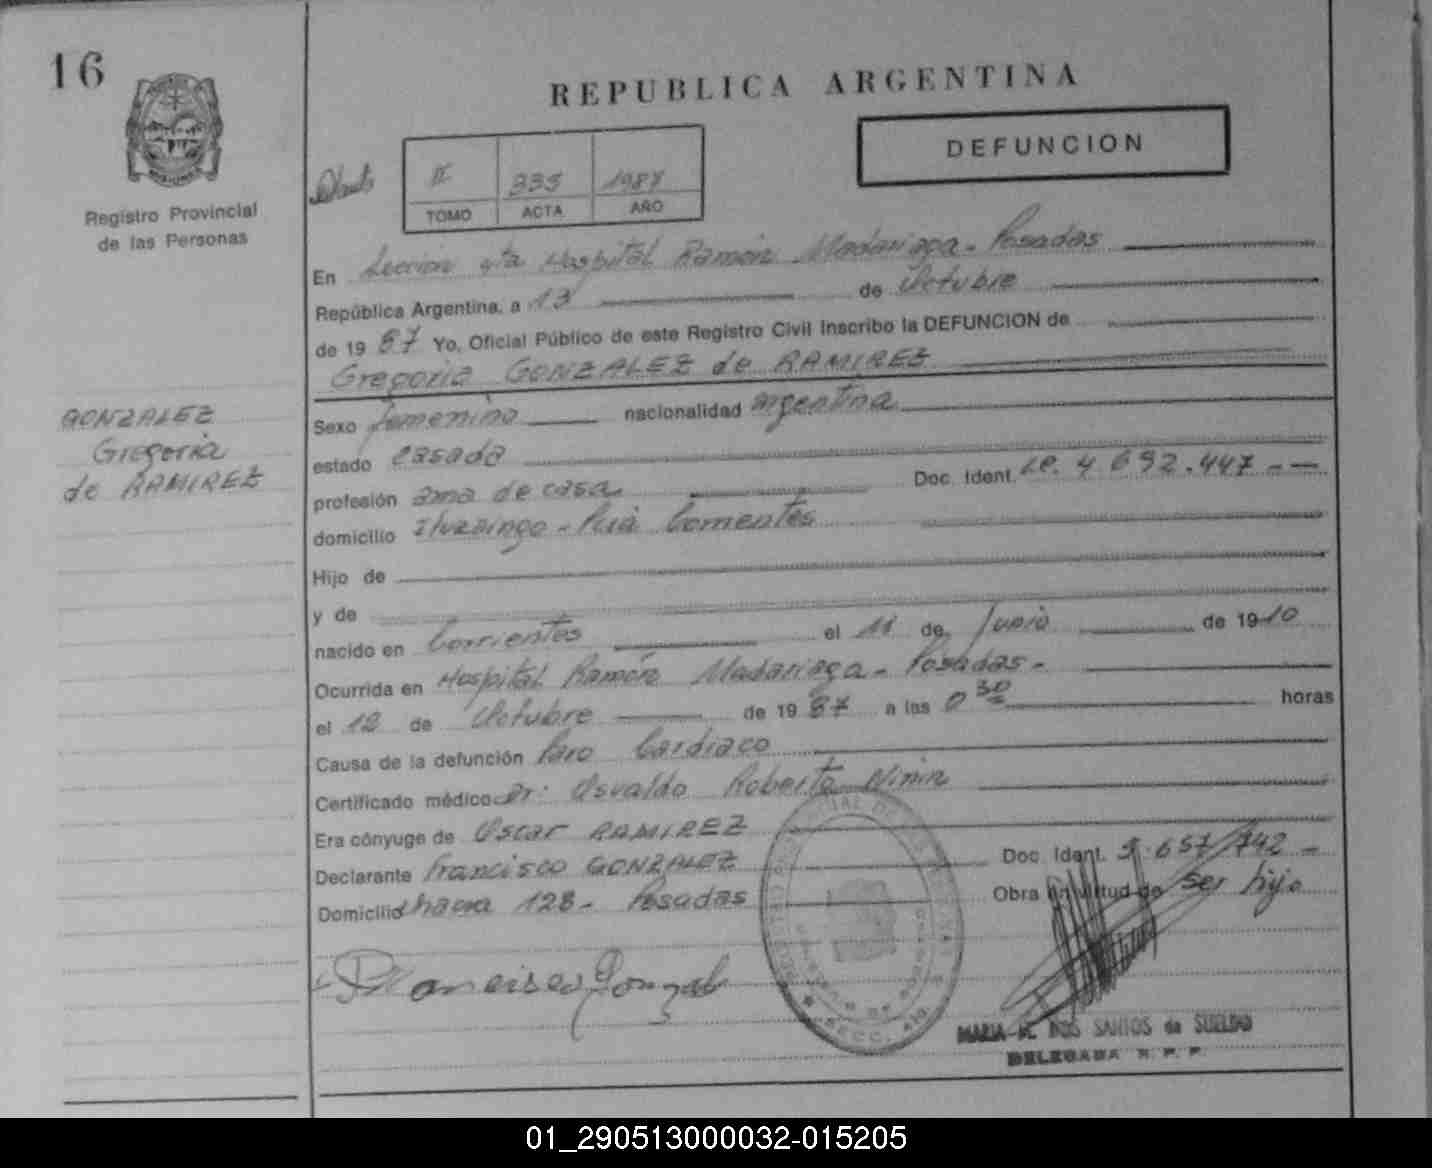 16
REPUBLICA ARGENTINA
DEFUNCION
II 335 1987
TOMO ACTA AÑO
Registro Provincial
de las Personas
En Sección 4ta Hospital Ramón Madariaga - Posadas
República Argentina, a 13 de Octubre
de 1987 Yo, Oficial Público de este Registro Civil Inscribo la DEFUNCION de
Gregoria GONZALEZ de RAMIREZ
GONZALEZ
Gregoria
de RAMIREZ
Sexo femenino nacionalidad argentina
estado casada
profesión ama de casa Doc. Ident. LC. 4.692.447 - -
domicilio Ituzaingo - Corrientes
Hijo de
y de
nacido en Corrientes el 11 de Junio de 1910
Ocurrida en Hospital Ramón Madariaga - Posadas -
el 12 de Octubre de 1987 a las 0 30 horas
Causa de la defunción Paro Cardiaco
Certificado médico Dr: Osvaldo Roberto
Era cónyuge de Oscar RAMIREZ
Declarante Francisco GONZALEZ Doc. Ident. 5.657/742 -
Domicilio Chacra 128 - Posadas Obra en virtud de ser hijo
Francisco Gonzalez
MARIA DOS SANTOS de SUELDO
DELEGADA R. P. P.
01_290513000032-015205